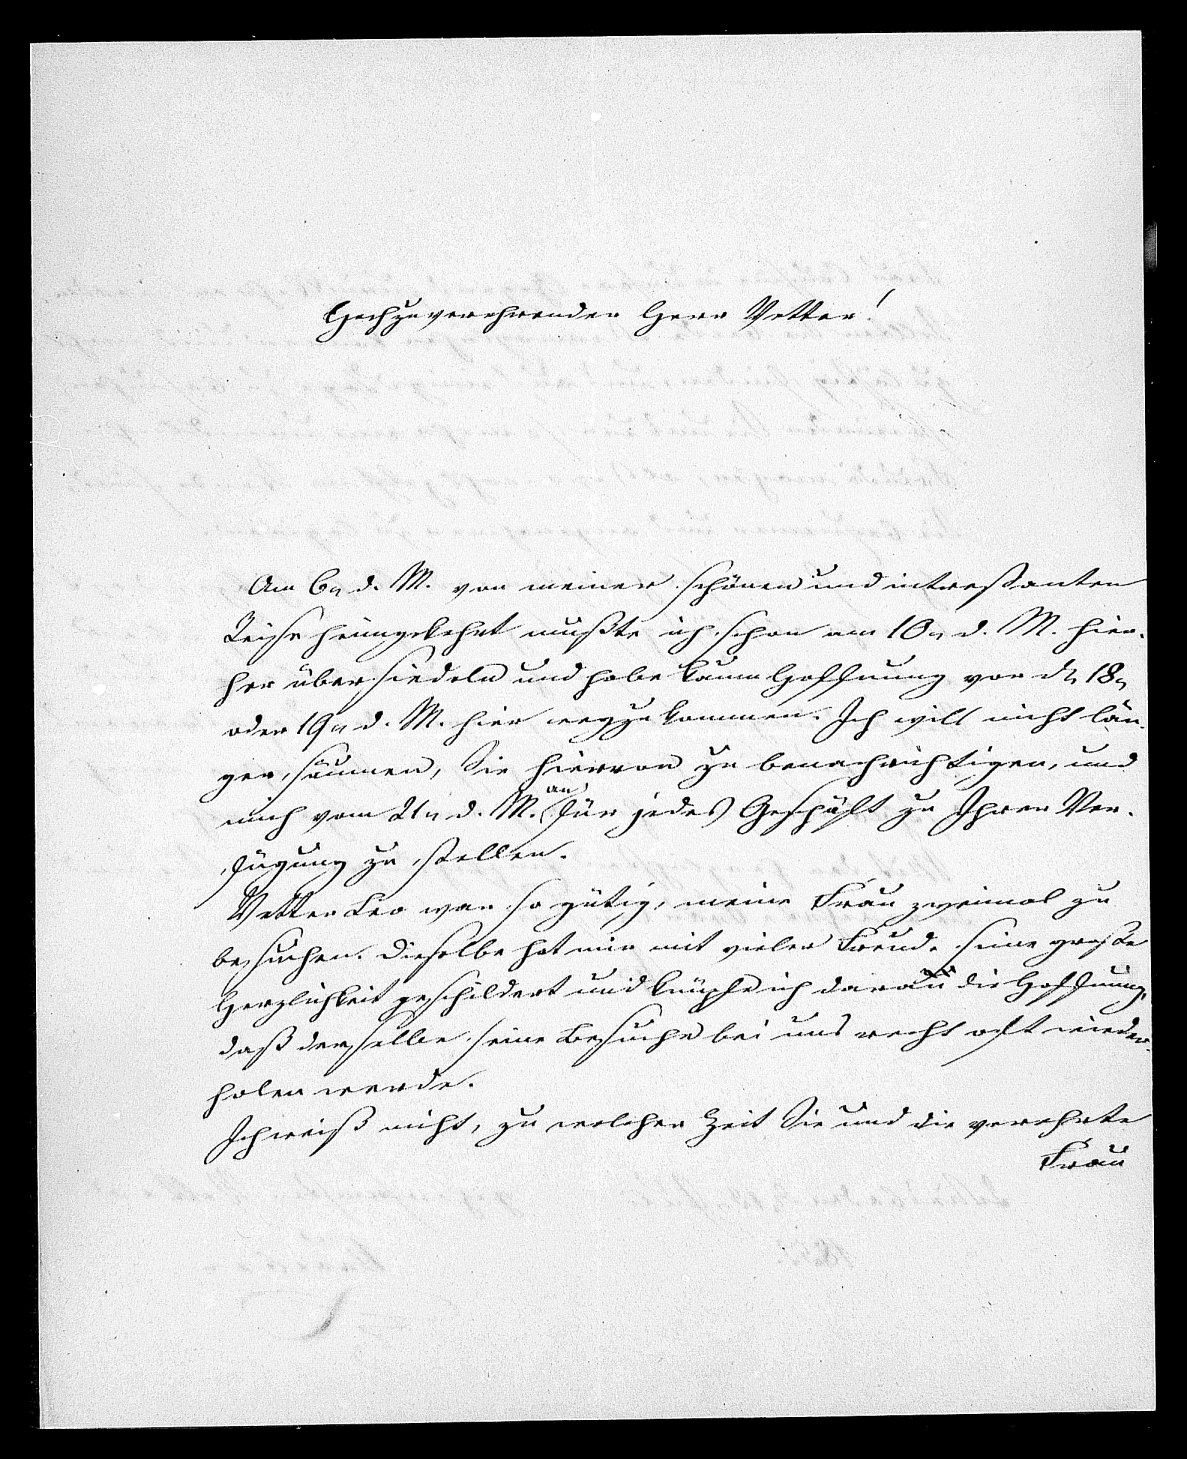 Hochzuverehrender Herr Vetter!
Am 6n d. M. von meiner schönen und interessanten
Reise heimgekehrt mußte ich schon am 10n d. M. hier-
her übersiedeln und habe kaum Hoffnung vor dn 18n
oder 19n d. M. hier wegzukommen. Ich will nicht län-
ger säumen, Sie hiervon zu benachrichtigen, und
mich vom 21n d. M. an für jedes Geschäft zu Ihrer Ver-
fügung zu stellen.
Vetter Leo war so gütig, meine Frau zweimal zu
besuchen. Dieselbe hat mir mit vieler Freude seine große
Herzlichkeit geschildert und knüpfe ich daran die Hoffnung,
daß derselbe seine Besuche bei uns recht oft wieder-
holen werde.
Ich weiß nicht, zu welcher Zeit Sie und die verehrte
Frau